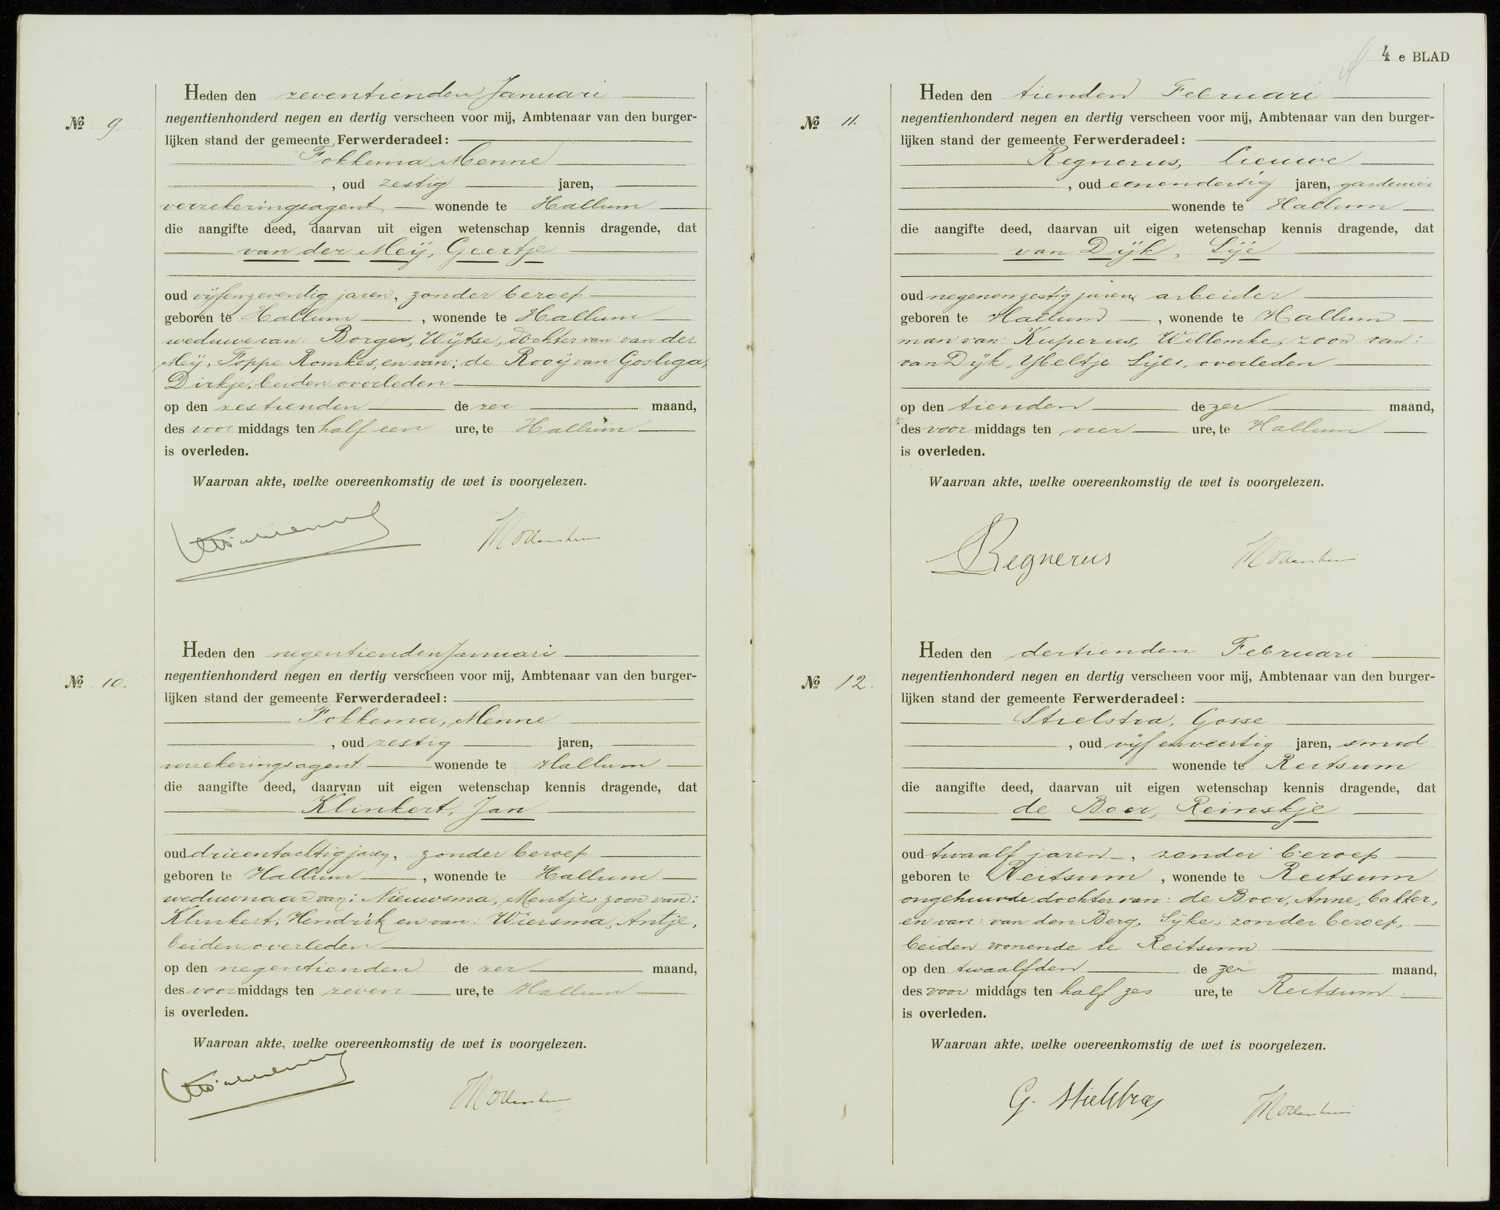 Nº 9
Heden den zeventienden Januari
negentienhonderd negen en dertig verscheen voor mij, Ambtenaar van den burger-
lijken stand der gemeente Ferwerderadeel:
Fokkema, Menne
, oud zestig jaren,
verzekeringsagent wonende te Hallum
die aangifte deed, daarvan uit eigen wetenschap kennis dragende, dat
van der Meij, Geertje
oud vijfenzeventig jaren, zonder beroep
geboren te Hallum , wonende te Hallum
weduwe van Borger, Wijtse, dochter van van der
Meij, Foppe Romkes, en van: de Rooij van Gosliga,
Dirkje, beiden overleden
op den zestienden dezer maand,
des voormiddags ten half een ure, te Hallum
is overleden.
Waarvan akte, welke overeenkomstig de wet is voorgelezen.
Nº 10.
Heden den negentienden Januari
negentienhonderd negen en dertig verscheen voor mij, Ambtenaar van den burger-
lijken stand der gemeente Ferwerderadeel:
Fokkema, Menne
, oud zestig jaren,
verzekeringsagent wonende te Hallum
die aangifte deed, daarvan uit eigen wetenschap kennis dragende, dat
Klinkert, Jan
oud drieentachtig jaren, zonder beroep
geboren te Hallum , wonende te Hallum
weduwnaar van: Nieuwsma, Mentje, zoon van:
Klinkert, Hendrik en van: Wiersma, Antje,
beiden overleden
op den negentienden dezer maand,
des voormiddags ten zeven ure, te Hallum
is overleden.
Waarvan akte, welke overeenkomstig de wet is voorgelezen.
4 e BLAD
Nº 11.
Heden den tienden Februari
negentienhonderd negen en dertig verscheen voor mij, Ambtenaar van den burger-
lijken stand der gemeente Ferwerderadeel:
Regnerus, Lieuwe
, oud eenendertig jaren, gardenier
wonende te Hallum
die aangifte deed, daarvan uit eigen wetenschap kennis dragende, dat
van Dijk, Sije
oud negenenzestig jaren, arbeider
geboren te Hallum , wonende te Hallum
man van: Kuperus, Willemke, zoon van:
van Dijk, IJbeltje Sijes, overleden
op den tienden dezer maand,
des voormiddags ten vier ure, te Hallum
is overleden.
Waarvan akte, welke overeenkomstig de wet is voorgelezen.
Regnerus
Nº 12.
Heden den dertienden Februari
negentienhonderd negen en dertig verscheen voor mij, Ambtenaar van den burger-
lijken stand der gemeente Ferwerderadeel:
Stielstra, Gosse
, oud vijfenveertig jaren, smid
wonende te Reitsum
die aangifte deed, daarvan uit eigen wetenschap kennis dragende, dat
de Boer, Reinskje
oud twaalf jaren, zonder beroep
geboren te Reitsum , wonende te Reitsum
ongehuwde dochter van: de Boer, Anne, bakker,
en van: van den Berg, Sijke, zonder beroep,
beiden wonende te Reitsum
op den twaalfden dezer maand,
des voormiddags ten half zes ure, te Reitsum
is overleden.
Waarvan akte, welke overeenkomstig de wet is voorgelezen.
G. Stielstra